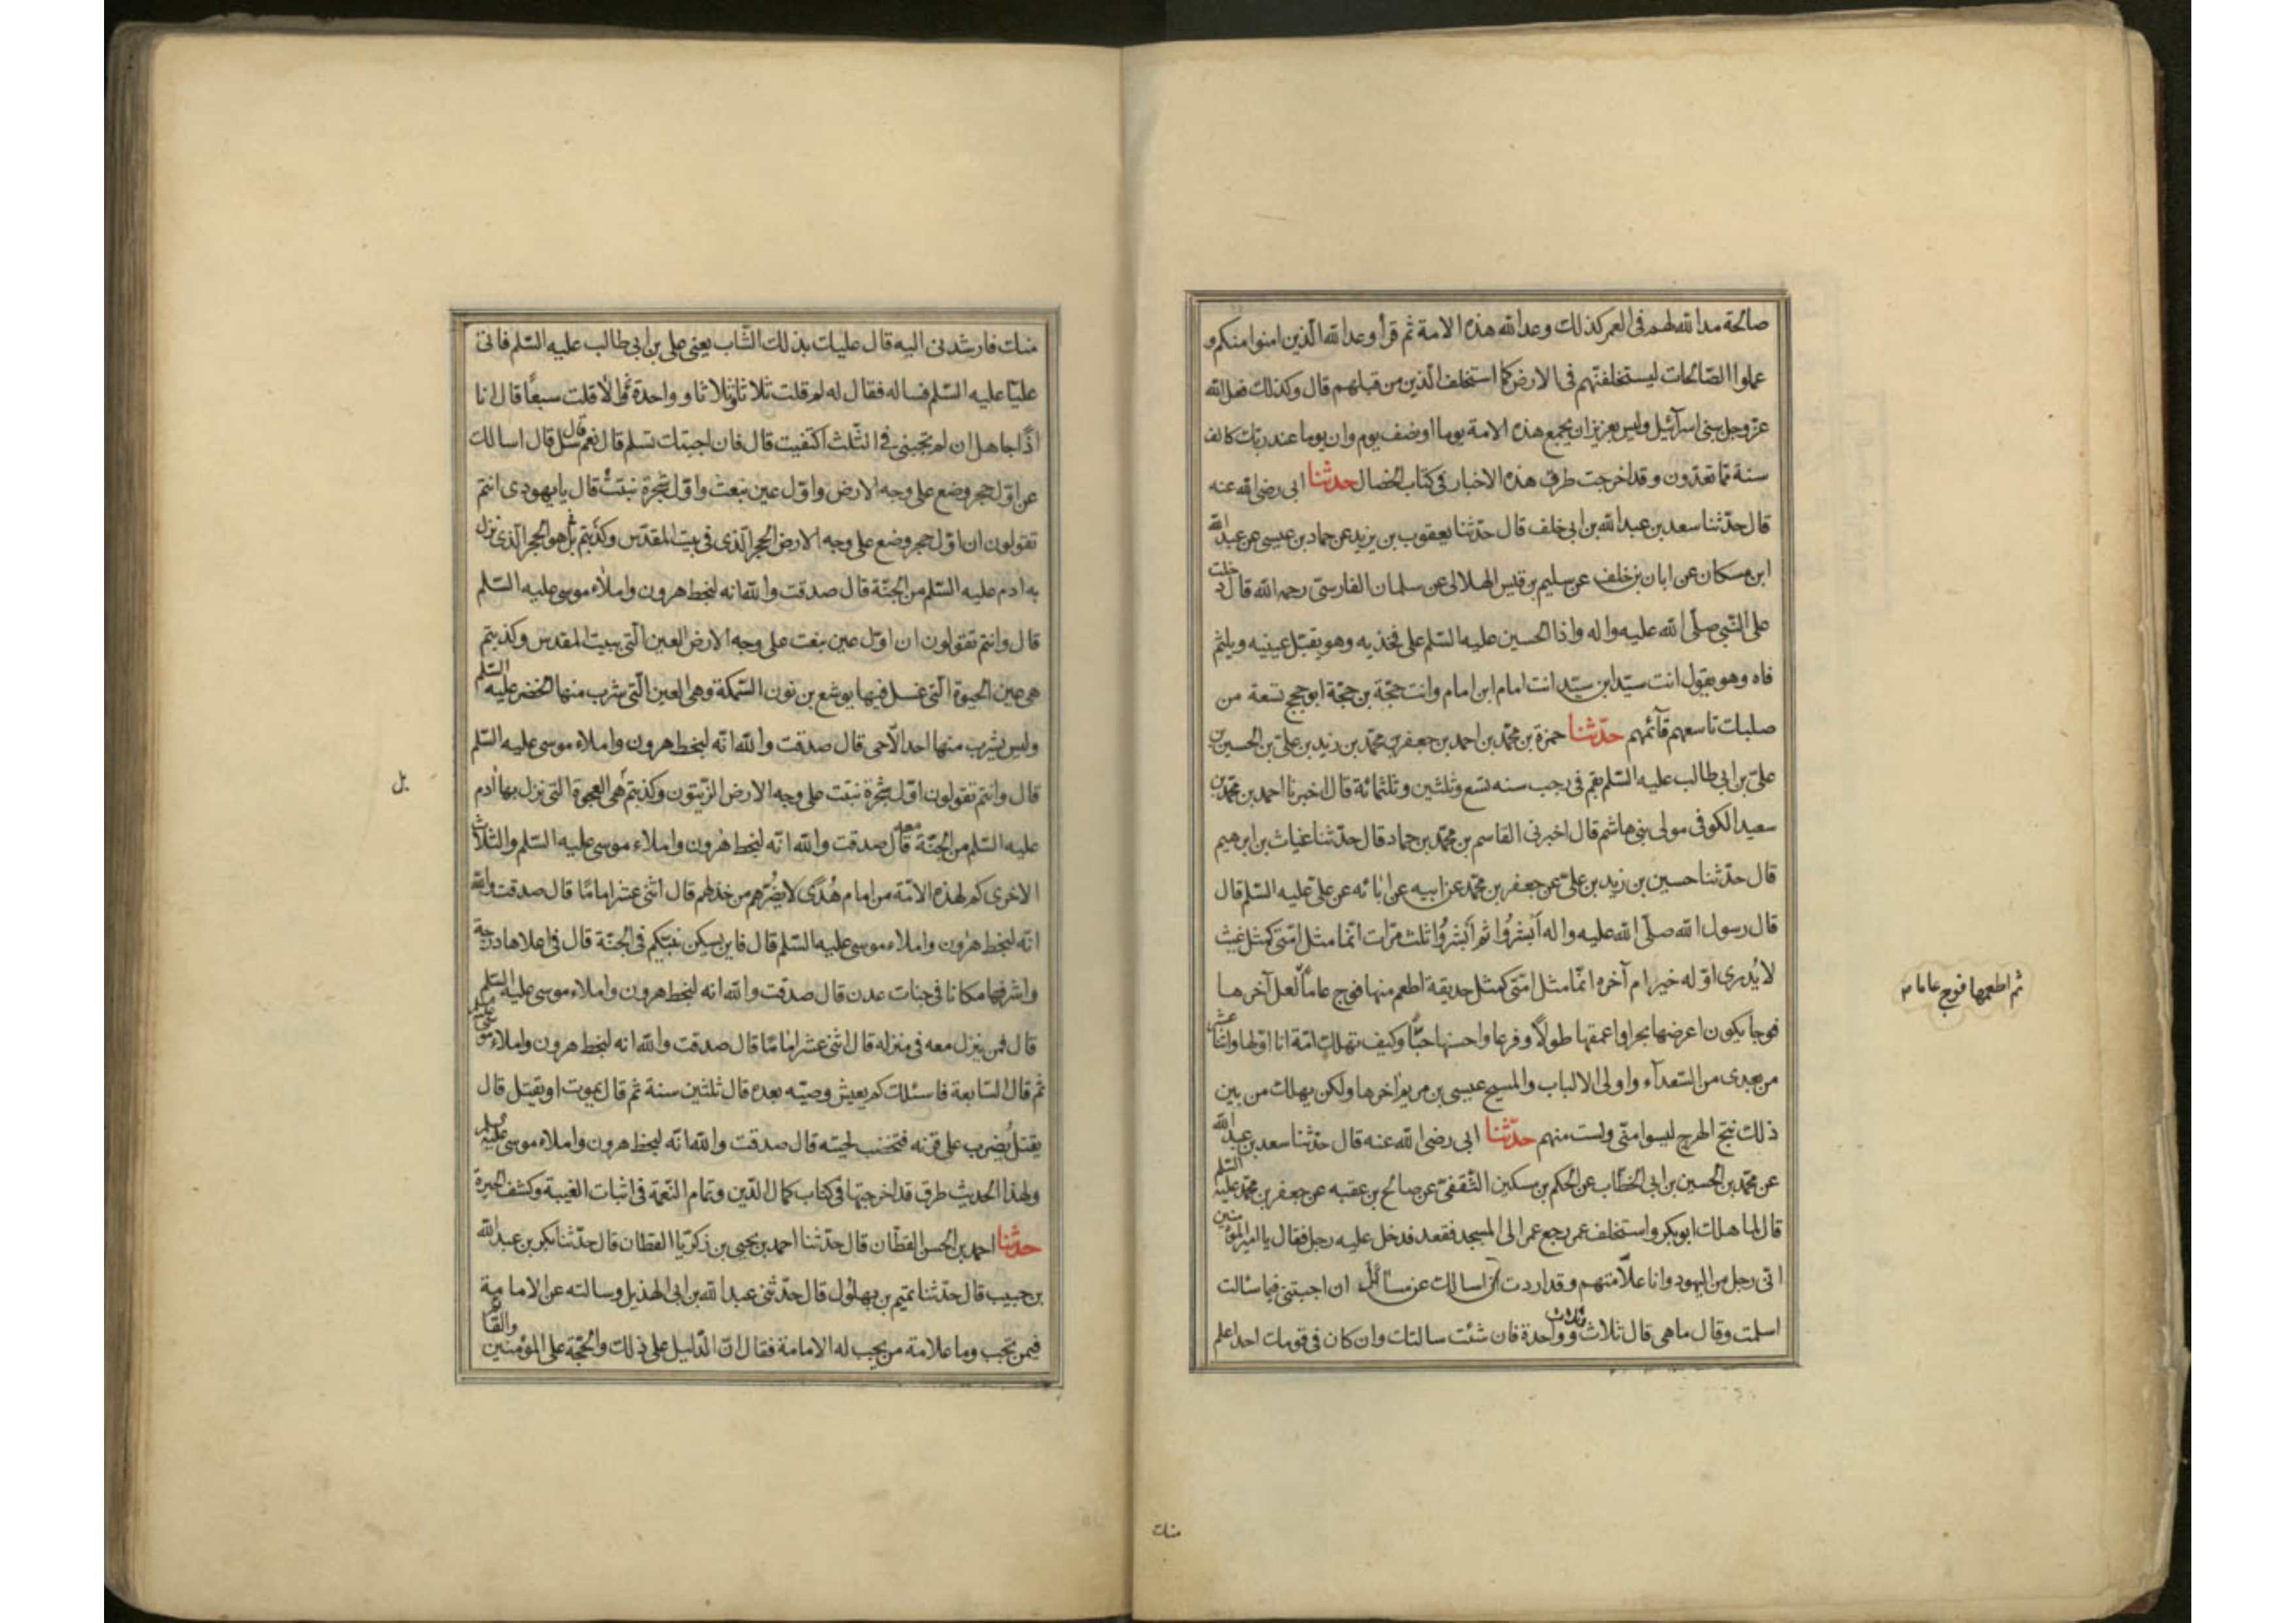 صالحة مد الله لهم فى العمر كذلك وعد الله هذه الامة ثم قرأ وعد الله الذين امنوا منكم و
عملوا الصّالحات ليستخلفنّهم فى الارض كما استخلف الّذين من قبلهم قال وكذلك فعل الله
عزّ وجل ببنى اسرآئيل وليس بعزيز ان يجمع هذه الامة يوما او نصف يوم وان يوما عند ربّك كالف
سنة ممّا تعدّون وقد اخرجت طرق هذه الاخبار فى كتاب الخصال حدثنا ابى رضى الله عنه
قال حدّثنا سعد بن عبد الله بن ابى خلف قال حدّثنا يعقوب بن يزيد عن حماد بن عيسى عن عبد الله
ابن مسكان عن ابان بن خلف عن سليم بن قيس الهلالى عن سلمان الفارسىّ رحمه الله قال دخلت
على النّبى صلّى الله عليه واله واذا الحسين عليه السّلم على فخذيه وهو يقبّل عينيه ويلثم
فاه وهو يقول انت سيّد ابن سيّد انت امام ابن امام وانت حجّة بن حجّة ابو حجج تسعة من
صلبك تاسعهم قآئمهم حدّثنا حمزة بن محمّد بن احمد بن جعفر بن محمّد بن زيد بن علىّ بن الحسين بن
علىّ بن ابى طالب عليه السّلم بقم فى رجب سنه تسع وثلثين وثلثمائة قال اخبرنا احمد بن محمّد بن
سعيد الكوفى مولى بنى هاشم قال اخبرنى القاسم بن محمّد بن حماد قال حدّثنا غياث بن ابرهيم
قال حدّثنا حسين بن زيد بن علىّ عن جعفر بن محمّد عن ابيه عن ابائه عن علىّ عليه السّلم قال
قال رسول الله صلّى الله عليه واله اَبشرُوا ثم اَبشرُوا ثلث مرّات انّما مثل امّتى كمثل غيث
لا يُدرى اوّله خير ام آخره انّما مثل امّتى كمثل حديقة اطعم منها فوج عاماً لعل آخرها
فوجا يكون اعرضها بحرا واعمقها طولاً وفرعا واحسنها حبّاً وكيف تهلك امّة انا اوّلها واثنا عشر
من بعدى من السّعدآء واولى الالباب والمسيح عيسى بن مريم اخرها ولكن يهلك من بين
ذلك نتج الهرج ليسوا منّى ولست منهم حدّثنا ابى رضى الله عنه قال حدّثنا سعد بن عبد الله
عن محمّد بن الحسين بن ابى الخطّاب عن الحكم بن مسكين الثّقفىّ عن صالح بن عقبه عن جعفر بن محمّد عليه السّلم
قال لما هلك ابو بكر واستخلف عمر رجع عمر الى المسجد فقعد فدخل عليه رجل فقال يا امير المؤمنين
انّى رجل من اليهود وانا علّامتهم وقد اردت ان اسالك عن مسائل ان اجبتنى فيها سالت
اسلمت وقال ما هى قال ثلاث وثلاث وواحدة فان شئت سالتك وان كان فى قومك احد اعلم
ثم اطعمها فوج عاما
منك
منك فارشدنى اليه قال عليك بذلك الشّاب يعنى على بن ابى طالب عليه السّلم فاتى
عليّا عليه السّلم فساله فقال له لم قلت ثلاثا وثلاثا وواحدة والّا قلت سبعًا قال انا
اذًا جاهل ان لم تجبنى فى الثّلث اكتفيت قال فان اجبتك تسلم قال نعم قال سل قال اسالك
عن اوّل حجر وضع على وجه الارض واوّل عين نبعت واوّل شجرة نبتت قال يا يهودى انتم
تقولون ان اوّل حجر وضع على وجه الارض الحجر الّذى فى بيت المقدّس وكذبتم بل هو الحجر الّذى نزل
به ادم عليه السّلم من الجنّة قال صدقت والله انه لبخط هرون واملاء موسى عليه السّلم
قال وانتم تقولون ان اوّل عين نبعت على وجه الارض العين الّتى ببيت المقدس وكذبتم
هى عين الحيوة الّتى غسل فيها يوشع بن نون السّمكة وهى العين الّتى شرب منها الخضر عليه السّلم
وليس يشرب منها احد الّا حى قال صدقت والله انّه لبخط هرون واملاء موسى عليه السّلم
قال وانتم تقولون اوّل شجرة نبتت على وجه الارض الزّيتون وكذبتم هى العجوة التى نزل بها ادم
عليه السّلم من الجنّة معه قال صدقت والله انّه لبخط هٰرون واملاء موسى عليه السّلم والثلاث
الاخرى كم لهذه الامّة من امام هُدًى لا يضُرّهم من خذلهم قال اثنى عشر اماما قال صدقت والله
انّه لبخط هرون واملاء موسى عليه السّلم قال فاين يسكن نبيّكم فى الجنّة قال فى اعلاها درجة
واشرفها مكانا فى جنات عدن قال صدقت والله انه لبخط هرون واملاء موسى عليه السّلم
قال فمن ينزل معه فى منزله قال اثنى عشر امامًا قال صدقت والله انه لبخط هرون واملاء موسى
ثم قال السّابعة فاسئلك كم يعيش وصيّه بعده قال ثلثين سنة ثم قال يموت او يقتل قال
يقتل يُضرب على قرنه فتخضب لحيته قال صدقت والله انّه لبخط هرون واملاء موسى
ولهذا الحديث طرق قد اخرجتها فى كتاب كمال الدّين وتمام النّعمة فى اثبات الغيبة وكشف الحيرة
حدّثنا احمد بن الحسن القطّان قال حدّثنا احمد بن يحيى بن زكريّا القطّان قال حدّثنا بكر بن عبد الله
بن حبيب قال حدّثنا تميم بن بهلُول قال حدّثنى عبد الله بن ابى الهذيل وسالته عن الامامة
فيمن تجب وما علامة من يجب له الامامة فقال انّ الدّليل على ذلك والحجّة على المؤمنين والقائم
بل